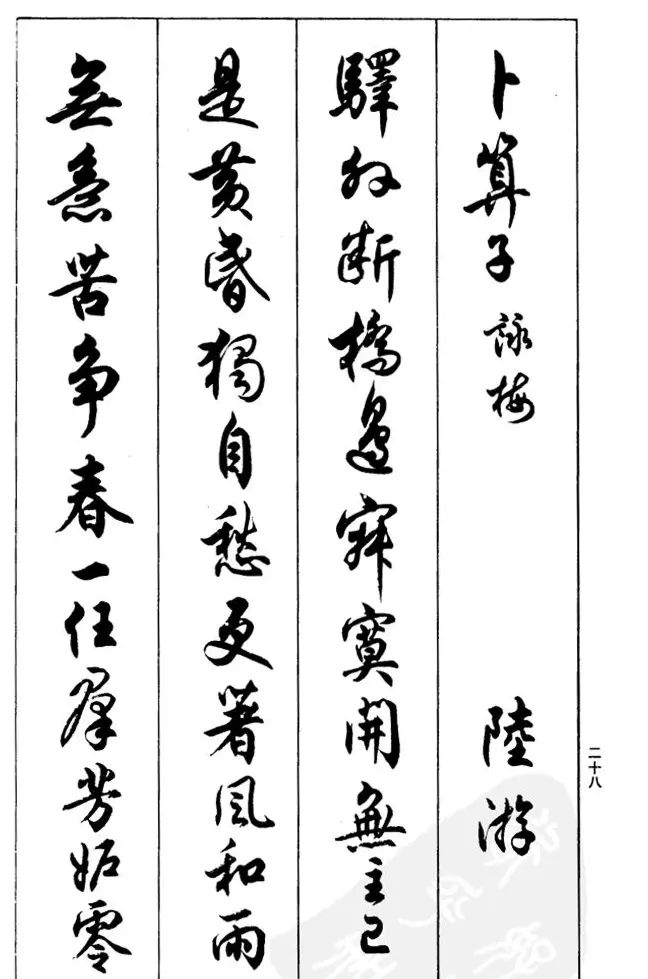 卜算子 詠梅 陸游
驛外斷橋邊寂寞開無主已
是黃昏獨自愁更著風和雨
無意苦爭春一任羣芳妬零
二十八